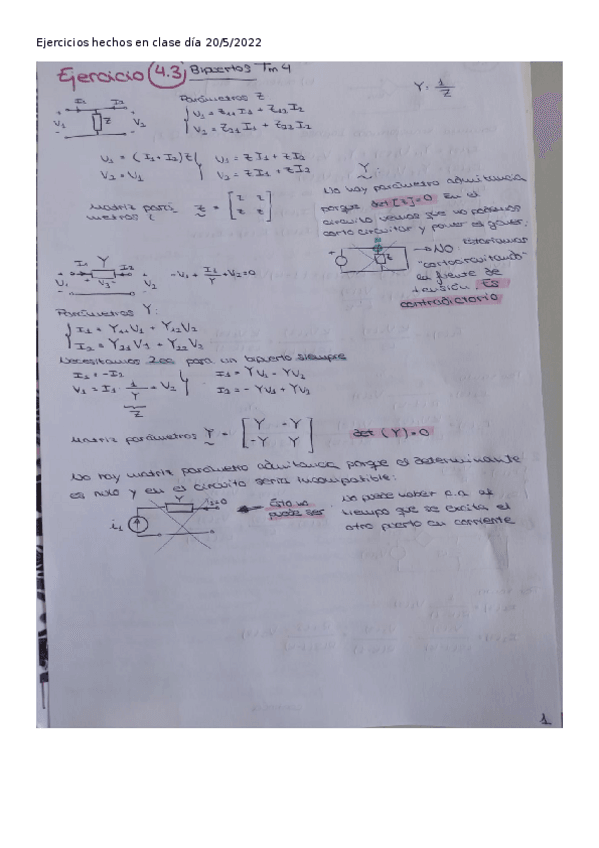 Ejercicios hechos en clase día 20/5/2022
Ejercicio 4.3 Bipuertos Tm 4
Parámetros Z
Y = 1/Z
I1 I2
V1 Z V2
V1 = Z11 I1 + Z12 I2
V2 = Z21 I1 + Z22 I2
V1 = (I1 + I2) Z
V2 = V1
V1 = Z I1 + Z I2
V2 = Z I1 + Z I2
Matriz pará-
metros
Z = [Z Z
Z Z]
Y:
No hay parámetro admitancia
porque det[Z]=0 En el
circuito vemos que no podemos
cortocircuitar y poner
→ NO Estaríamos
"cortocircuitando"
la fuente de
tensión. Es
contradictorio
I1 Y I2
V1 + V3 - V2
-V1 + I1/Y + V2 = 0
Parámetros Y:
I1 = Y11 V1 + Y12 V2
I2 = Y21 V1 + Y22 V2
Necesitamos 2 ec para un bipuerto siempre
I1 = -I2
V1 = I1 · 1/Y + V2
Z
I1 = Y V1 - Y V2
I2 = - Y V1 + Y V2
Matriz parámetros Y = [Y -Y
-Y Y]
det (Y) = 0
No hay matriz parámetro admitancia porque el determinante
es nulo y en el circuito sería incompatible:
Y I=0
i1
Esto no
puede ser
No puede haber c.a al
tiempo que se excita el
otro puerto en corriente
1